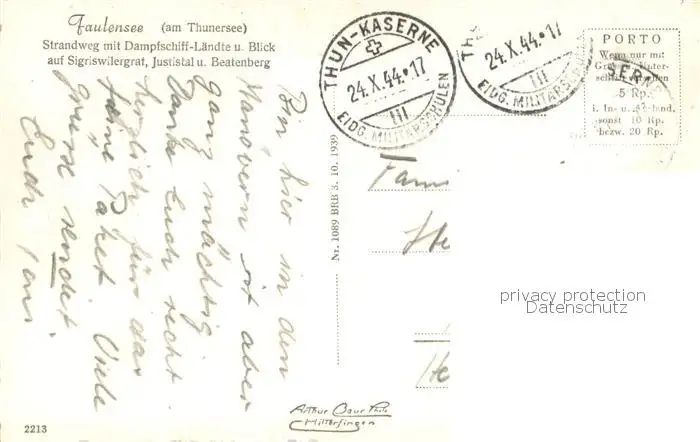 Faulensee (am Thunersee)
Strandweg mit Dampfschiff-Ländte u. Blick
auf Sigriswilergrat, Justistal u. Beatenberg
THUN-KASERNE
24.X.44.-17
III
EIDG. MILITÄRSCHULEN
24.X.44.-17
III
EIDG. MILITÄRSCHULEN
PORTO
Wenn nur mit
5 Rp.
sonst 10 Rp.
bezw. 20 Rp.
Bin hier in den
Manövern ist aber
ganz mächtig.
Danke Euch recht
herzlich für das
feine Paket. Viele
Grüsse sendet
Euch
Nr. 1089 BRB 3. 10. 1939
Fam
He
privacy protection /
Datenschutz
Arthur Baur Phot.
Hilterfingen
2213